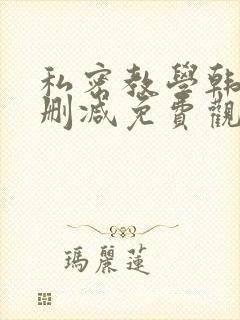 私密教學韓
刪減免費觀
瑪麗蓮